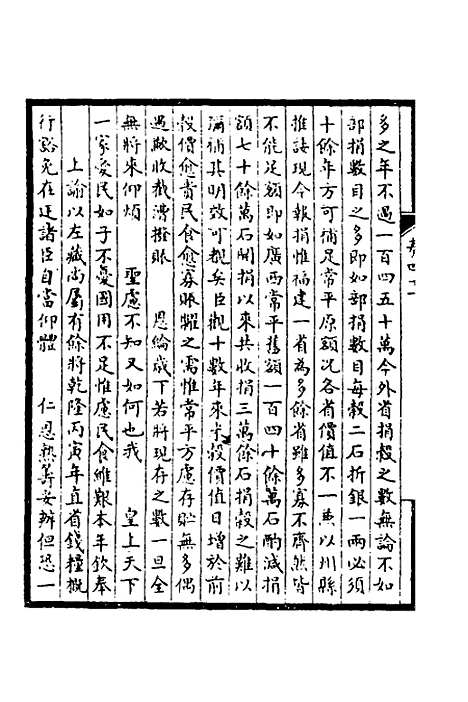 多之年不過一百四五十萬今外省捐穀之數無論不如
部捐數目之多即如部捐數目每穀二石折銀一兩必須
十餘年方可補足常平原額况各省價值不一兼以州縣
推諉現今報捐惟福建一省為多餘省雖多寡不齊然皆
不能足額即如廣西常平舊額一百四十餘萬石酌減捐
額七十餘萬石開捐以來共收捐三萬餘石捐穀之難以
彌補其明效可覩矣臣觀十數年來米穀價值日增於前
穀價愈貴民食愈寡賑糶之需惟常平方慮存貯無多偶
遇歉收截漕撥賑 恩綸歲下若將現存之數一旦全
無將來仰煩 聖慮不知又如何也我 皇上天下
一家愛民如子不憂國用不足惟慮民食維艱本年欽奉
上諭以左藏尚屬有餘將乾隆丙寅年直省錢糧概
行豁免在廷諸臣自當仰體 仁恩熟籌妥辦但恐一
卷四十一